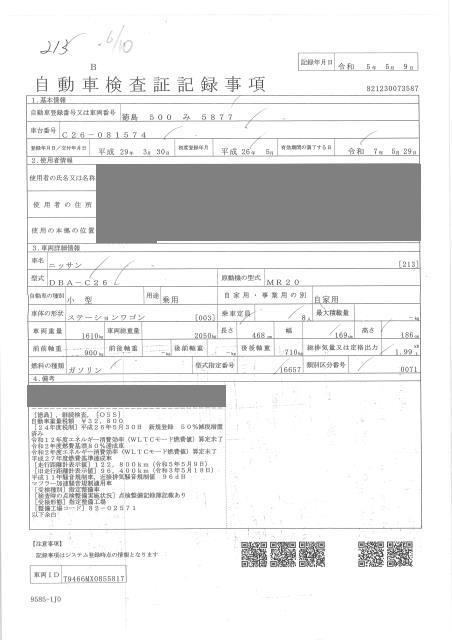 213
6/10
B
記録年月日 令和 5年 5月 9日
自動車検査証記録事項
821230073587
1.基本情報
自動車登録番号又は車両番号 徳島 500 み 5877
車台番号 C26-081574
登録年月日/交付年月日 平成 29年 3月 30日 初度登録年月 平成 26年 5月 有効期間の満了する日 令和 7年 5月 29日
2.使用者情報
使用者の氏名又は名称
使用者の住所
使用の本拠の位置
3.車両詳細情報
車名 ニッサン [213]
型式 DBA-C26 原動機の型式 MR20
自動車の種別 小型 用途 乗用 自家用・事業用の別 自家用
車体の形状 ステーションワゴン [003] 乗車定員 8人 最大積載量 -kg
車両重量 1610kg 車両総重量 2050kg 長さ 468cm 幅 169cm 高さ 186cm
前前軸重 900kg 前後軸重 -kg 後前軸重 -kg 後後軸重 710kg 総排気量又は定格出力 1.99L
燃料の種類 ガソリン 型式指定番号 16657 類別区分番号 0071
4.備考
[徳島],継続検査,[OSS]
自動車重量税額 ¥32,800
[24年度税制]平成26年5月30日 新規登録 50%減税措置
済み
令和12年度エネルギー消費効率(WLTCモード燃費値)算定未了
令和2年度燃費基準80%達成車
令和2年度エネルギー消費効率(WLTCモード燃費値)算定未了
平成27年度燃費基準達成車
[走行距離計表示値]122,800km(令和5年5月9日)
[旧走行距離計表示値]96,400km(令和3年5月18日)
平成11年騒音規制車,近接排気騒音規制値 96dB
マフラー加速騒音規制適用車
[受検種別]指定整備車
[検査時の点検整備実施状況]点検整備記録簿記載あり
[受検形態]指定整備工場
[整備工場コード]82-02571
以下余白
[注意事項]
記録事項はシステム登録時点の情報となります
車両ID T9466MX0855817
9585-1J0